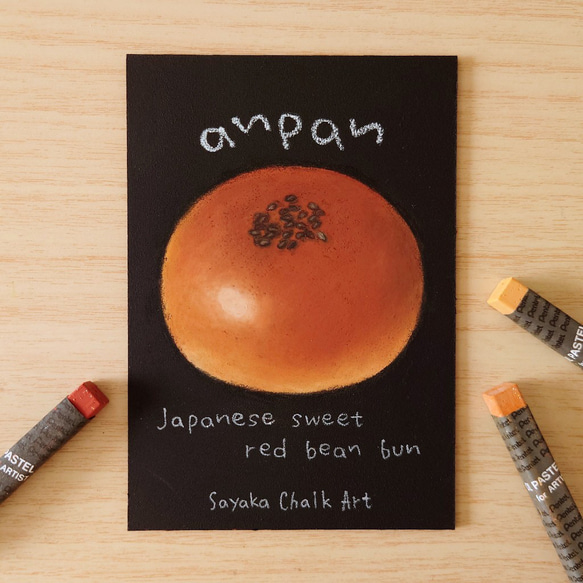 anpan
Japanese sweet
red bean bun
Sayaka Chalk Art
PASTEL
ARTIS
PASTEL
PASTEL
for ARTI